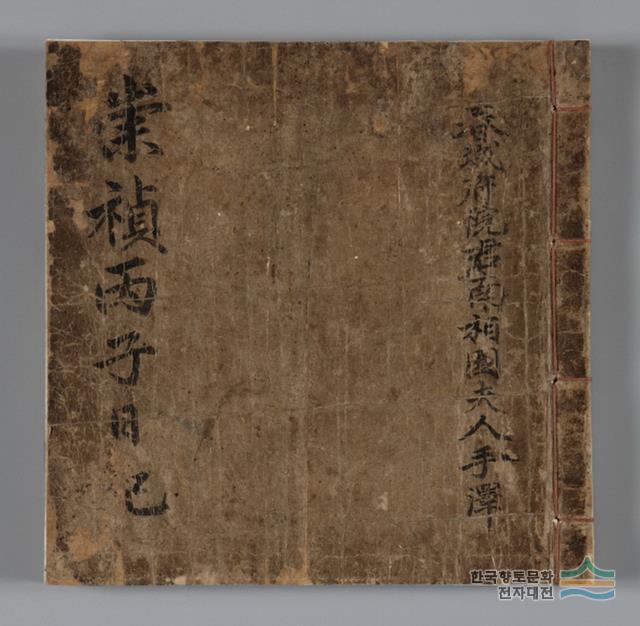 春城府院君南相國夫人手澤
崇禎丙子日己
한국향토문화
전자대전